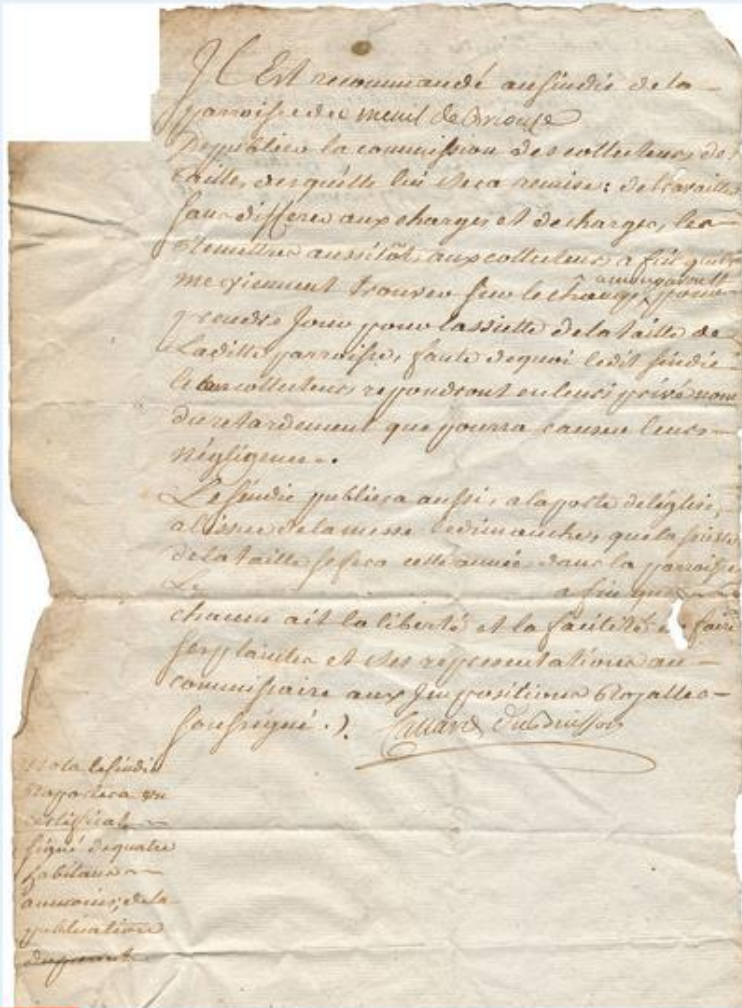 Il Est recommandé au sindic de la
parroisse du menil de Briouse
De publier la commission des collecteurs de
tailles, desquelle lui sera remise : de travailler
sans differer aux charges et decharges, les
remettre aussitôt aux collecteurs, afin quils
me viennent trouver sur le champ, pour
prendre Jour pour lassiette de la taille de
Laditte parroisse, faute dequoi ledit sindic
les collecteurs repondront en leurs privé nom
du retardement que pourra causer leurs
négligence.
Le sindic publiera aussi, a la porte de léglise,
a lissue de la messe dimanche, que
de la taille se fera cette année dans la parroisse
Le afin que
chacun ait la liberté et la facilité de faire
ses plaintes et ses representations au
commissaire aux Impositions Royalles
soussigné .).
Nota le sindic
Raportera un
certificat
signé de quatre
habitans
aumoins, de la
publication
du present